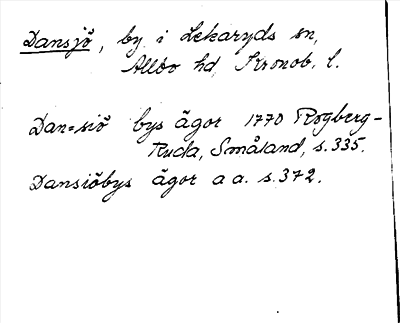 Dansjö, by i Lekaryds sn,
Allbo hd, Kronob. l.
Dan=siö bys ägor 1770 Rogberg-
Ruda, Småland, s. 335.
Dansiöbys ägor a a. s. 372.